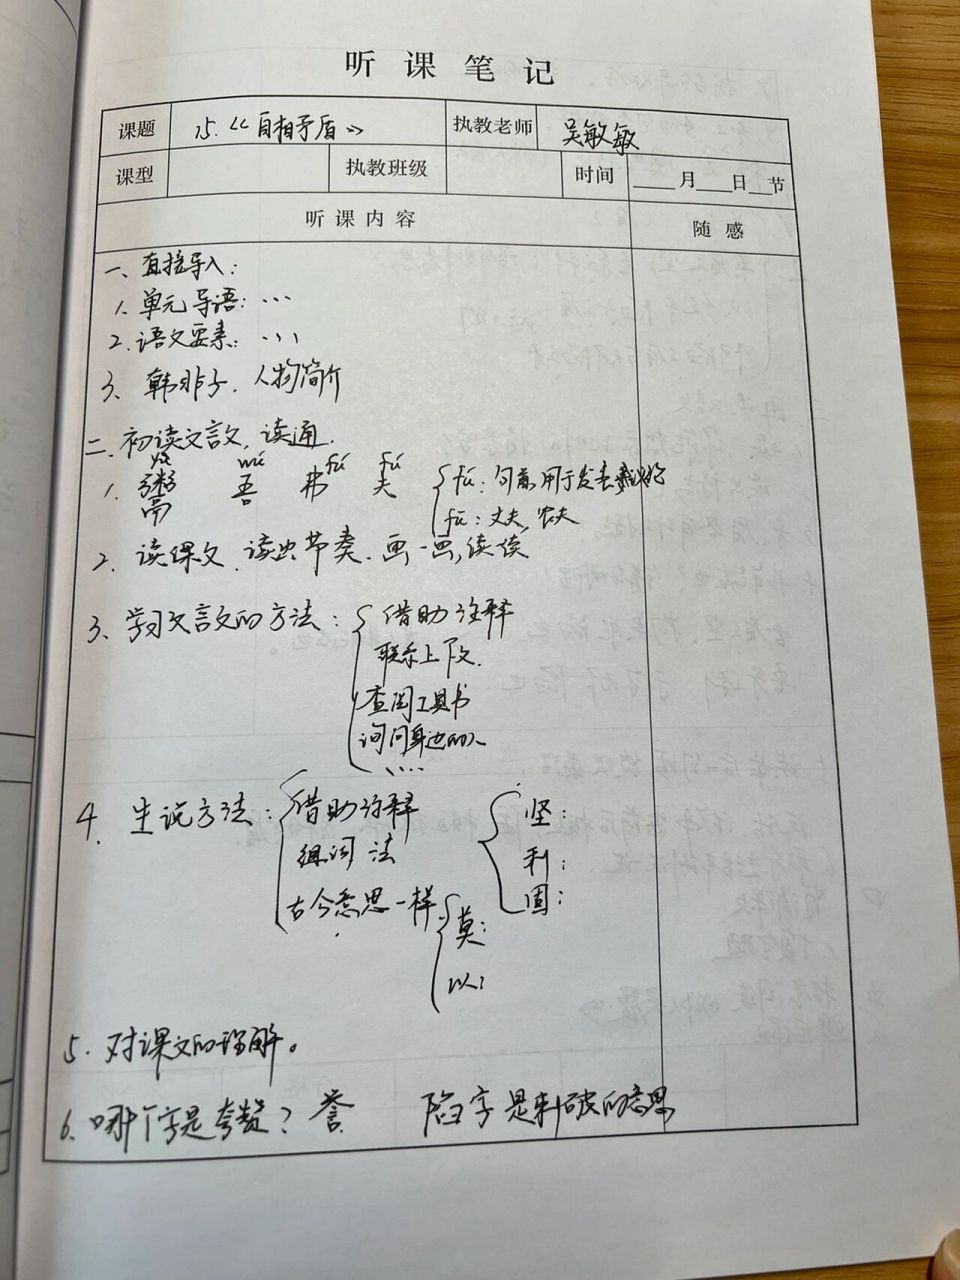 听课笔记
课题 15.《自相矛盾》 执教老师 吴敏敏
课型 执教班级 时间 ___月___日__节
听课内容 随感
一、直接导入:
1.单元导语:...
2.语文要素:...
3、韩非子、人物简介
二、初读文言文,读通.
yù wú fú fú
1. 鬻 吾 弗 夫 fú:句首用于发表议论
fū:丈夫,农夫
2、读课文、读出节奏、画一画,读读
3、学习文言文的方法:借助注释
联系上下文.
查阅工具书
询问身边的人
....
4、生说方法:借助注释 坚:
组词法 利:
固:
古今意思一样. 莫:
以:
5.对课文的理解。
6.哪个字是夸赞?誉 陷字是刺破的意思